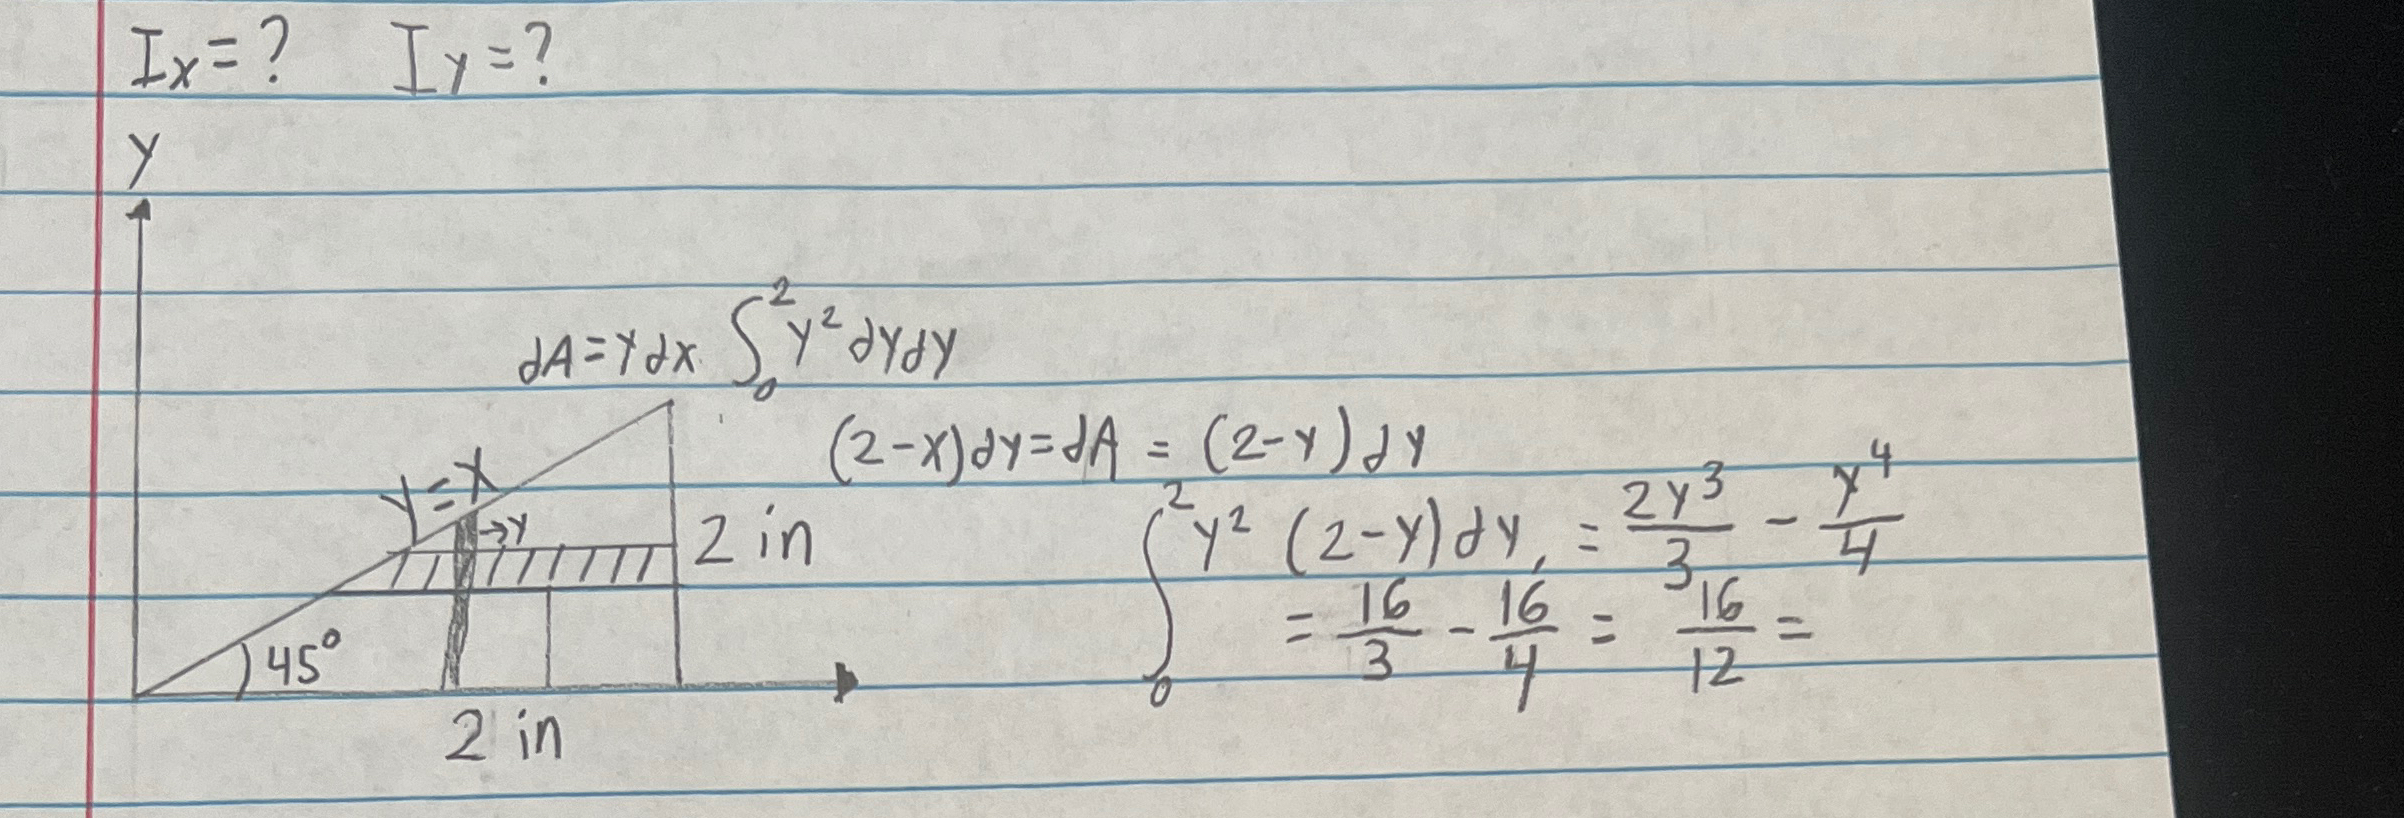 Ix = ? Iy = ?
y
dA = y dx ∫₀² y² dy dy
(2-x) dy = dA = (2-y) dy
y = x
→y
2 in
∫₀² y² (2-y) dy, = 2y³/3 - y⁴/4
= 16/3 - 16/4 = 16/12 =
45°
2 in